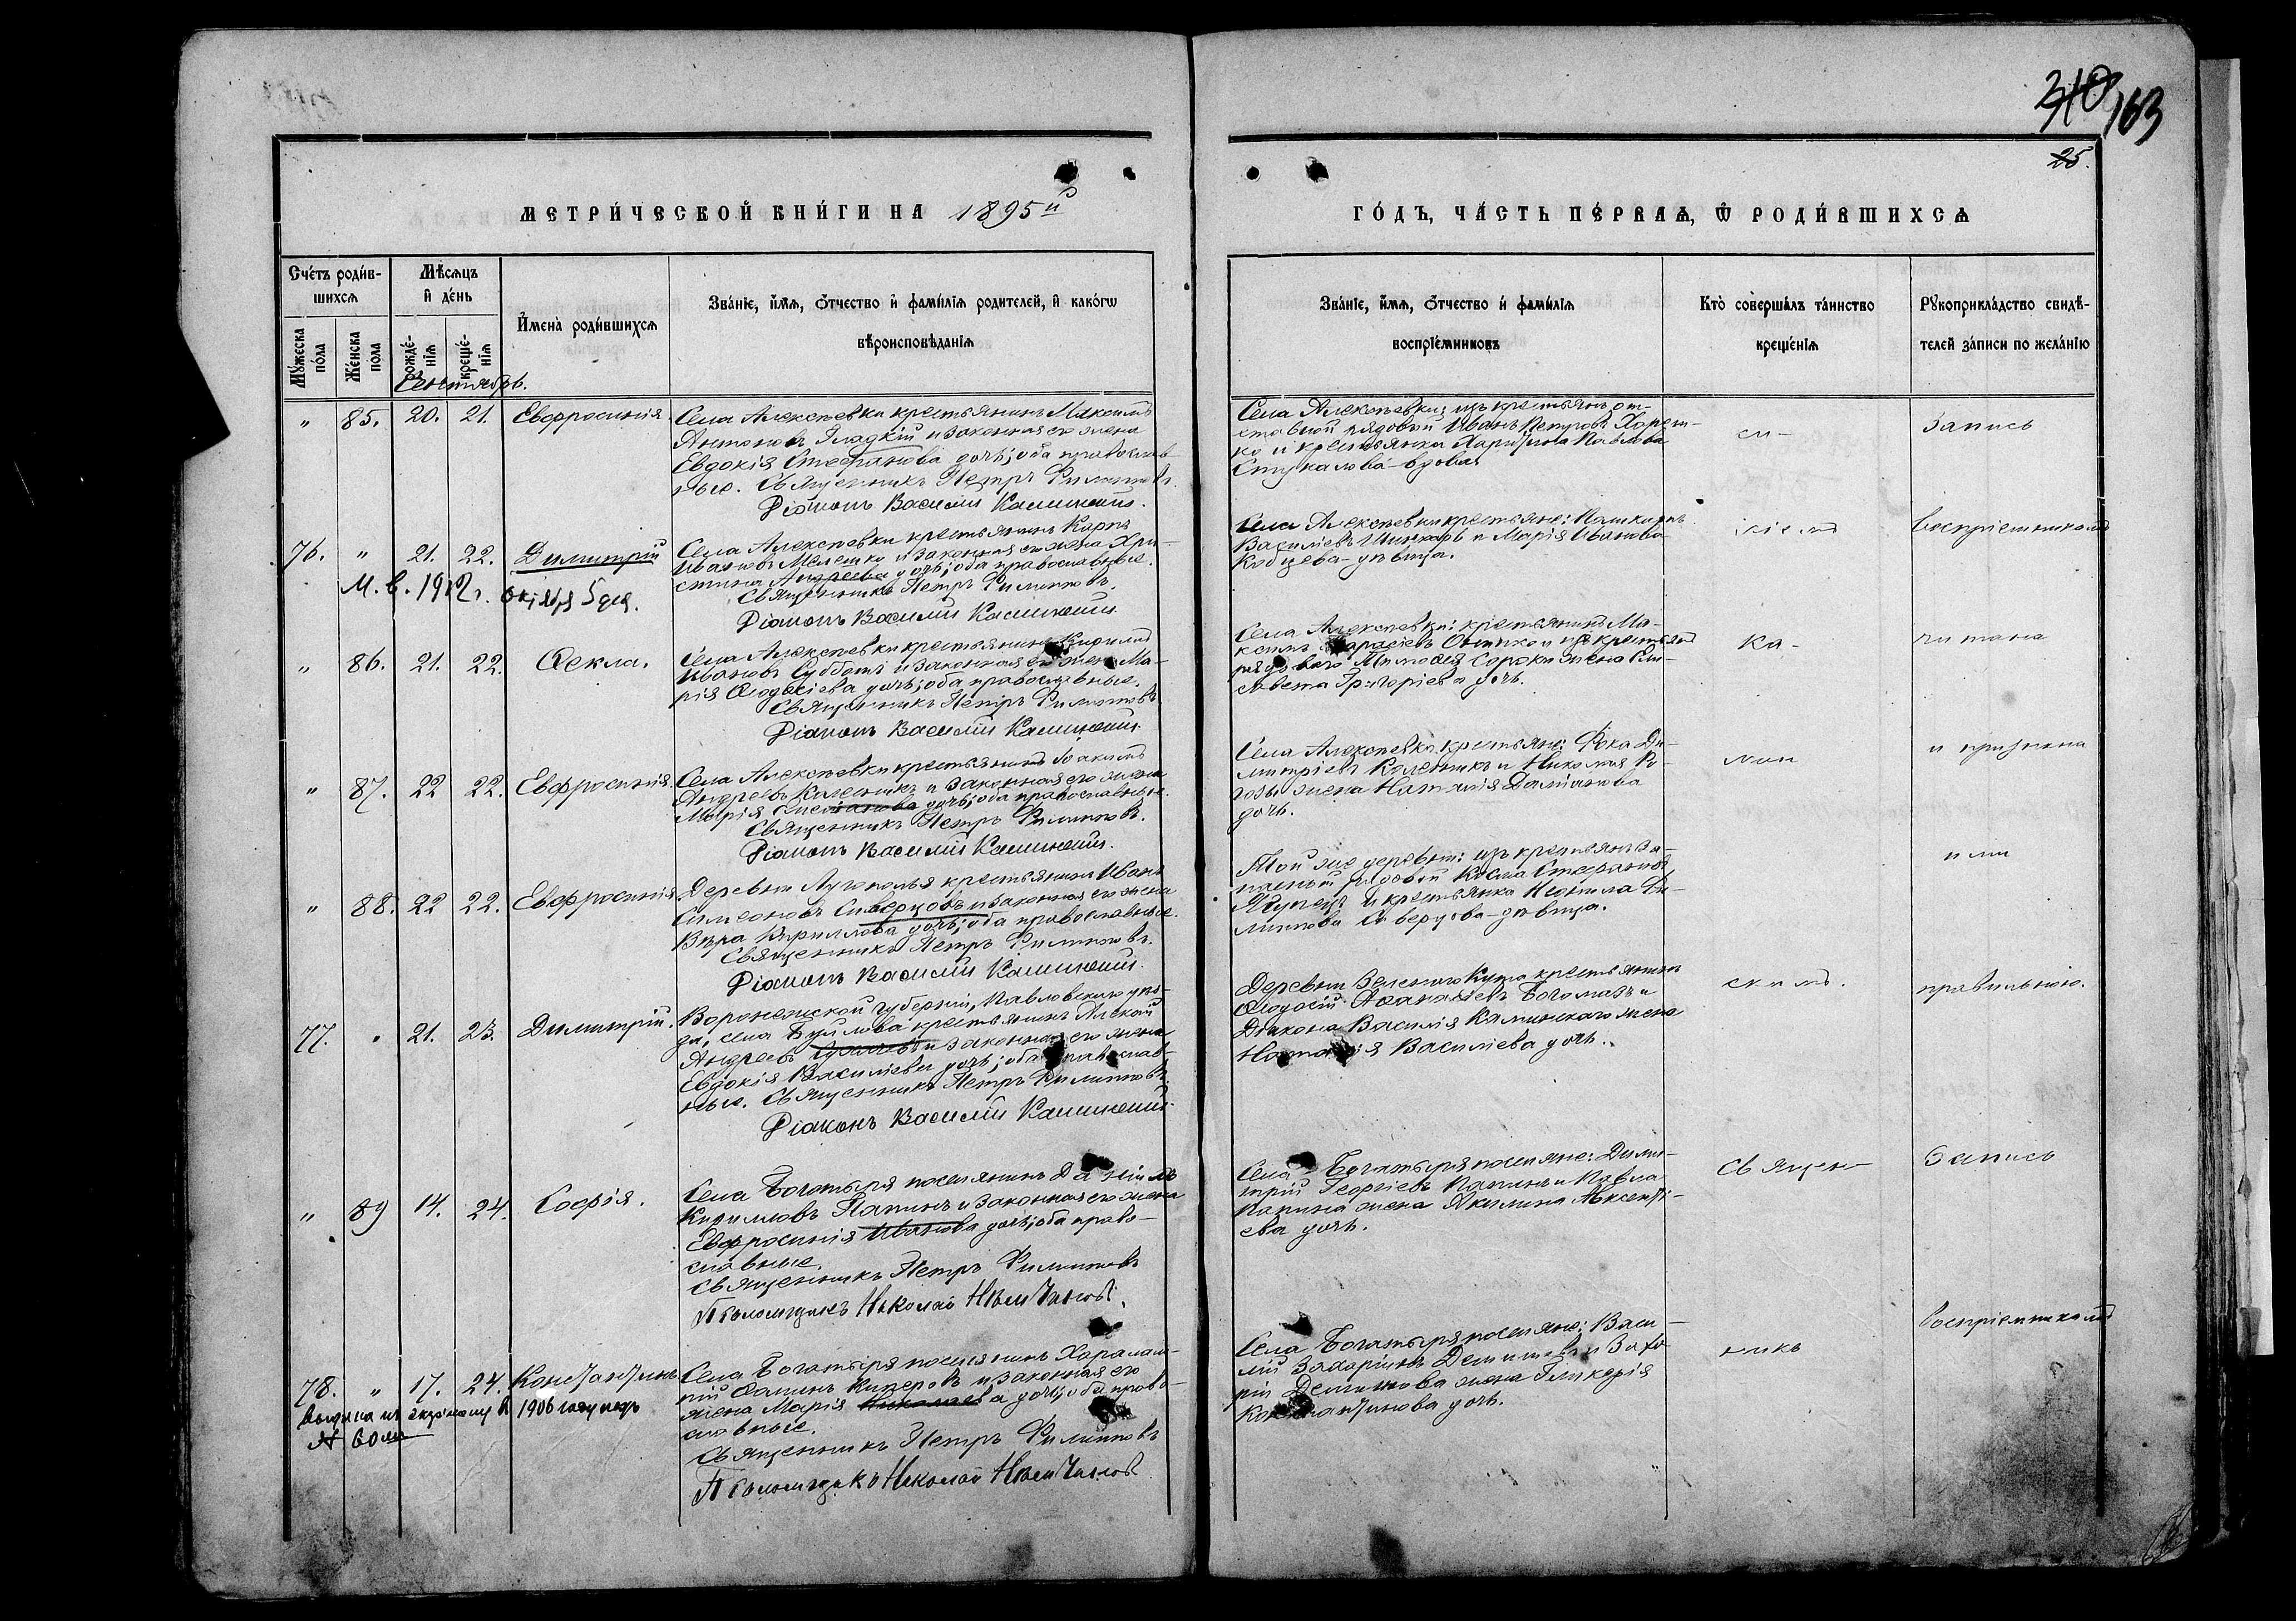 310 163
25.
МЕТРИ́ЧЕСКОЙ КНИ́ГИ НА 1895й
ГО́ДЪ, ЧА́СТЬ ПЕ́РВАѦ, Ѡ҆ РОДИ́ВШИХСѦ
Сче́тъ роди́в-
шихсѧ
Мѣ́сѧцъ
и҆ де́нь
И҆мена̀ роди́вшихсѧ
Зва́нїе, и҆́мѧ, ѻ҆́тчество и҆ фами́лїѧ родителей, и҆ како́гѡ
вѣроисповѣ́данїѧ
Мꙋ́жеска
по́ла
Же́нска
пола
рожде́-
нїѧ
креще́-
нїѧ
Зва́нїе, и҆́мѧ, ѻ҆́тчество и҆ фами́лїѧ
воспрїе́мниковъ
Кто̀ соверша́лъ та́инство
креще́нїѧ
Рꙋкоприкла́дство свидѣ́-
телей за́писи по жела́нїю
Сентябрь.
" 85. 20. 21. Евфросинія.
Села Алексѣевки крестьянинъ Максимъ
Антоновъ Гладкій и законная его жена
Евдокія Стефанова дочь; оба православ-
ные. Священникъ Петръ Филипповъ.
Діаконъ Василій Каминскій.
Села Алексѣевки: изъ крестьянъ от-
ставной рядовой Иванъ Петровъ
и крестьянка Харитина Павлова
Стукалова-вдова.
Запись
76. " 21. 22. Димитрій
М. в. 1912 г. октября 5 дня.
Села Алексѣевки крестьянинъ Карпъ
Ивановъ Мелешко и законная его жена Хри-
стина Андреева дочь; оба православные.
Священникъ Петръ Филипповъ.
Діаконъ Василій Каминскій.
Села Алексѣевки крестьяне:
Василіевъ и Марія Иванова
Кобцева-дѣвица.
воспріемниками
" 86. 21. 22. Ѳекла.
Села Алексѣевки крестьянинъ Кириллъ
Ивановъ Суббота и законная его жена Ма-
рія Ѳеодосіева дочь; оба православные.
Священникъ Петръ Филипповъ
Діаконъ Василій Каминскій
Села Алексѣевки: крестьянинъ Ма-
ксимъ
рядового Тимоѳея Сороки жена Ели-
савета Григоріева дочь.
ка-
читана
" 87. 22 22. Евфросинія.
Села Алексѣевки крестьянинъ Іоакимъ
Андреевъ Коленикъ и законная его жена
Марія дочь; оба православные.
Священникъ Петръ Филипповъ.
Діаконъ Василій Каминскій.
Села Алексѣевки крестьяне: Фока Ди-
митріевъ Коленикъ и Николая Ро-
жена Наталія Даміанова
дочь.
и признана
" 88. 22 22. Евфросинія
Деревни крестьянинъ Иванъ
Симеоновъ Сиверцовъ и законная его жена
Вѣра Кириллова дочь; оба православные.
Священникъ Петръ Филипповъ.
Діаконъ Василій Каминскій.
Той же деревни: изъ крестьянъ за-
пасный рядовой Косма Стефановъ
и крестьянка Неонила Фи-
липпова Сиверцова-дѣвица.
ими
77. " 21. 23. Димитрій.
Воронежской губерніи, Павловскаго уѣз-
да, села Буйлова крестьянинъ Алексѣй
Андреевъ и законная его жена
Евдокія Василіева дочь; оба православ-
ные. Священникъ Петръ Филипповъ
Діаконъ Василій Каминскій.
Деревни Зеленаго Кута крестьянинъ
Ѳеодосій Аѳанасіевъ Богомазъ и
Діакона Василія Каминскаго жена
Наталія Василіева дочь.
скимъ.
правильною.
" 89 14. 24. Софія.
Села Богатыря поселянинъ Даніилъ
Кирилловъ Папинъ и законная его жена
Евфросинія Иванова дочь; оба право-
славные.
Священникъ Петръ Филипповъ
Псаломщикъ Николай
Села Богатыря поселяне: Дими-
трій Георгіевъ Папинъ и Павла
Папина жена Акилина Авксентi-
ева дочь.
Священ-
Запись
78. " 17. 24. Константинъ
1906 году
Села Богатыря поселянинъ Харалам-
пій и законная его
жена Марія Николаева дочь; оба право-
славные.
Священникъ Петръ Филипповъ
Псаломщикъ Николай
Села Богатыря поселяне: Васи-
лій Захаріинъ и Заха-
рія жена Гликерія
Константинова дочь.
никъ
воспріемниками